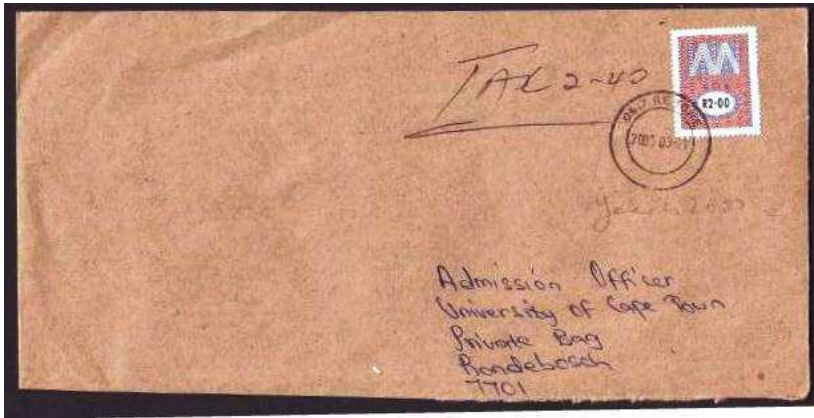 TAX 2-40
R2-00
Admission Officer
University of Cape Town
Private Bag
Rondebosch
7701